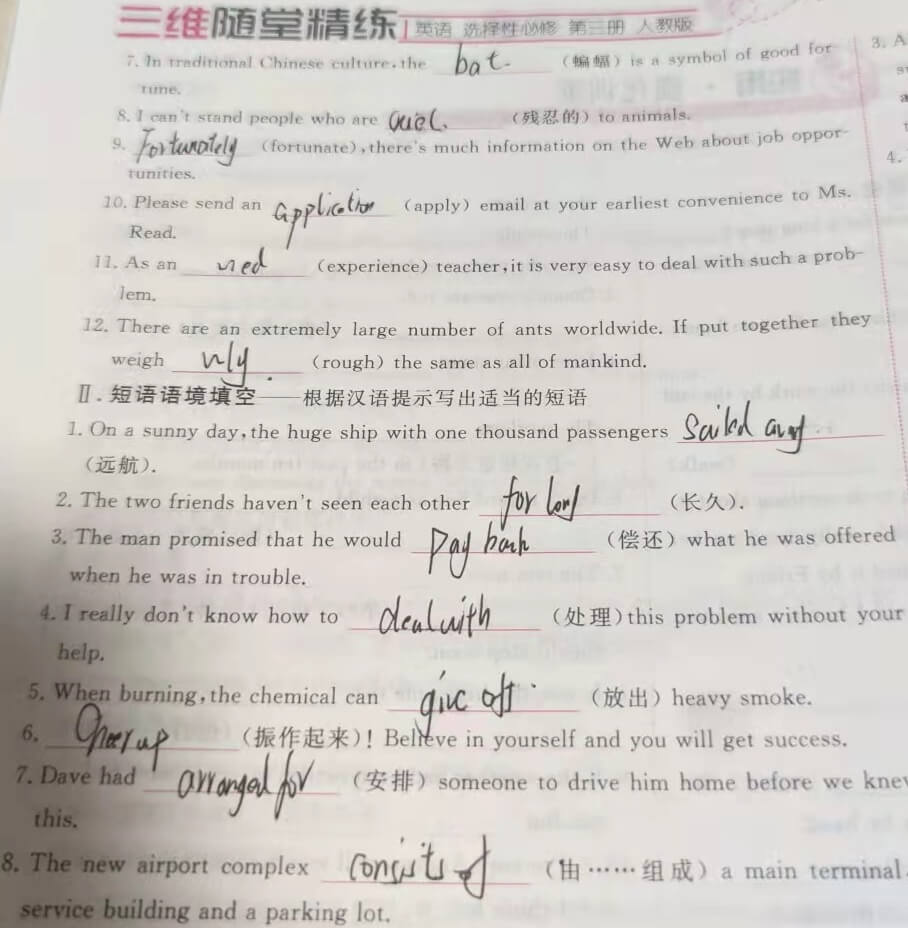 三维随堂精练 英语 选择性必修 第三册 人教版
7. In traditional Chinese culture, the bat. (蝙蝠) is a symbol of good for-
tune.
8. I can't stand people who are (残忍的) to animals.
9. Fortunately (fortunate), there's much information on the Web about job oppor-
tunities.
10. Please send an application (apply) email at your earliest convenience to Ms.
Read.
11. As an (experience) teacher, it is very easy to deal with such a prob-
lem.
12. There are an extremely large number of ants worldwide. If put together they
weigh (rough) the same as all of mankind.
Ⅱ. 短语语境填空——根据汉语提示写出适当的短语
1. On a sunny day, the huge ship with one thousand passengers sailed away
(远航).
2. The two friends haven't seen each other for long (长久).
3. The man promised that he would pay back (偿还) what he was offered
when he was in trouble.
4. I really don't know how to deal with (处理) this problem without your
help.
5. When burning, the chemical can give off (放出) heavy smoke.
6. Cheer up (振作起来)! Believe in yourself and you will get success.
7. Dave had arranged for (安排) someone to drive him home before we knew
this.
8. The new airport complex consists of (由……组成) a main terminal
service building and a parking lot.
3. A
4.